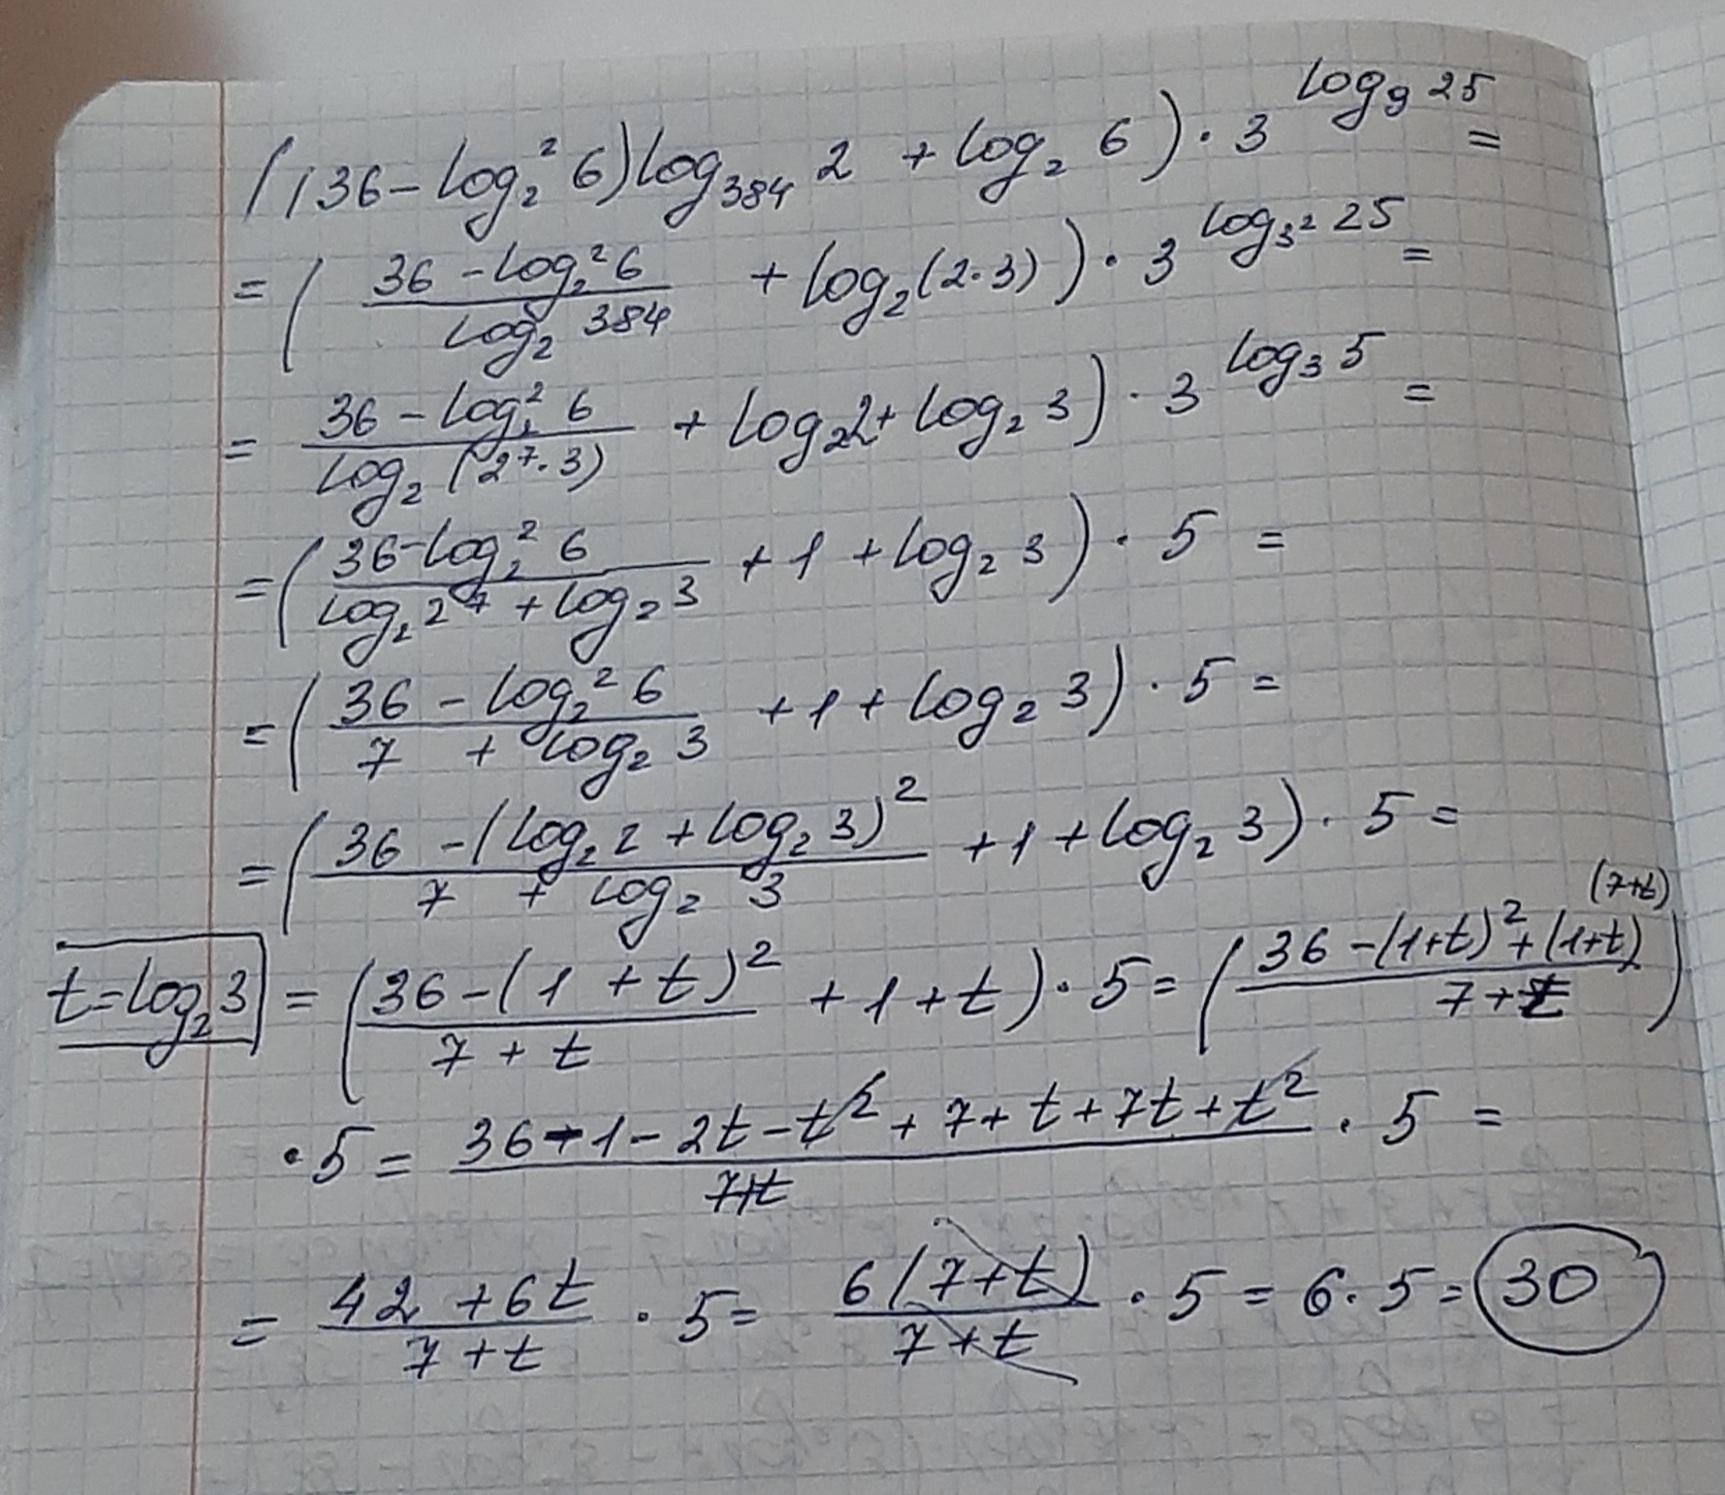 ((36 - log₂² 6) log₃₈₄ 2 + log₂ 6) · 3^(log₉ 25) =
= ( (36 - log₂² 6)/(log₂ 384) + log₂(2·3) ) · 3^(log_(3²) 25) =
= (36 - log₂² 6)/(log₂ (2⁷·3)) + log₂2 + log₂ 3) · 3^(log₃ 5) =
= ( (36 - log₂² 6)/(log₂ 2⁷ + log₂ 3) + 1 + log₂ 3) · 5 =
= ( (36 - log₂² 6)/(7 + log₂ 3) + 1 + log₂ 3) · 5 =
= ( (36 - (log₂ 2 + log₂ 3)²)/(7 + log₂ 3) + 1 + log₂ 3) · 5 =
t = log₂3 = ( (36 - (1 + t)²)/(7 + t) + 1 + t) · 5 = ( (36 - (1+t)² + (1+t)(7+t))/(7 + t) )
· 5 = (36 - 1 - 2t - t² + 7 + t + 7t + t²)/(7+t) · 5 =
= (42 + 6t)/(7 + t) · 5 = 6(7+t)/(7 + t) · 5 = 6 · 5 = 30